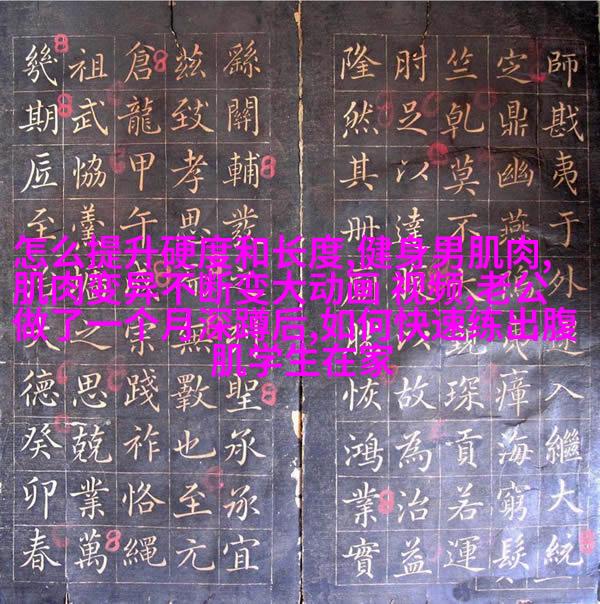 怎么提升硬度和长度,健身男肌肉,
肌肉变异不断变大动画 视频,老公
做了一个月深蹲后,如何快速练出腹
肌学生在家
師戡夷于外入繼大統
定鼎幽燕民瘴海窮髮
竺乹莫不琛貢若運
肘足以達以故為治益
隆然其冊恢鴻業實
繇關輔發聖承承宜
茲致孝思無斁也至元
倉龍甲午宗踐祚恪繩
祖武恊羣之思兢業萬
幾期底至德癸卯春